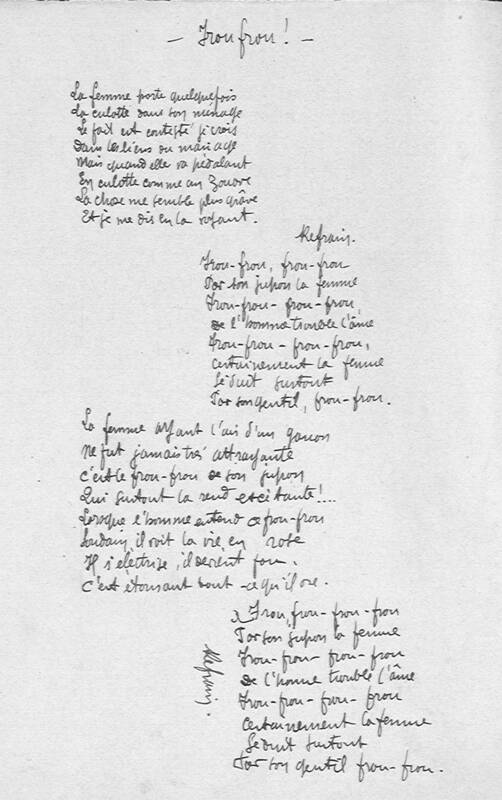 - Frou frou! -
La femme porte quelquefois
La culotte dans son ménage
Le fait est contesté je crois
Dans les liens du mariage
Mais quand elle va pédalant
En culotte comme un zouave
La chose me semble plus grâve
Et je me dis en la voyant.
Refrain.
Frou-frou, frou-frou
Par son jupon la femme
Frou-frou-frou-frou
de l'homme trouble l'âme
Frou-frou-frou-frou,
certainement la femme
Séduit surtout
Par son gentil, frou-frou.
La femme ayant l'air d'un gason
Ne fut jamais très attrayante
c'est le frou-frou de son jupon
Qui surtout la rend excitante!...
Lorsque l'homme entend ce frou-frou
Soudain, il voit la vie en rose
Il s'électrise, il devient fou.
C'est étonnant tout ce qu'il ose.
Refrain.
Frou, frou-frou-frou
Par son jupon la femme
Frou-frou-frou-frou
de l'homme trouble l'âme
Frou-frou-frou-frou
certainement la femme
Séduit surtout
Par son gentil frou-frou.